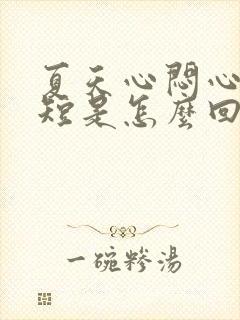 夏天心悶心
短是怎麼回
一碗糝湯